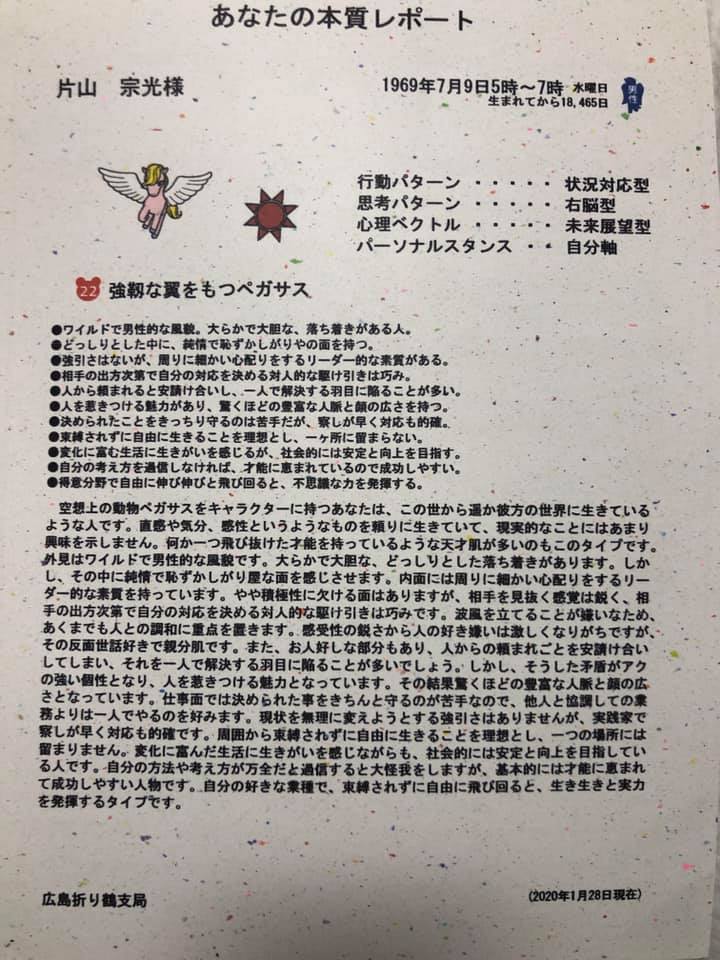 あなたの本質レポート
片山 宗光様
1969年7月9日5時～7時 水曜日
生まれてから18,465日
男性
行動パターン ・・・・・ 状況対応型
思考パターン ・・・・・ 右脳型
心理ベクトル ・・・・・ 未来展望型
パーソナルスタンス ・・ 自分軸
22 強靭な翼をもつペガサス
●ワイルドで男性的な風貌。大らかで大胆な、落ち着きがある人。
●どっしりとした中に、純情で恥ずかしがりやの面を持つ。
●強引さはないが、周りに細かい心配りをするリーダー的な素質がある。
●相手の出方次第で自分の対応を決める対人的な駆け引きは巧み。
●人から頼まれると安請け合いし、一人で解決する羽目に陥ることが多い。
●人を惹きつける魅力があり、驚くほどの豊富な人脈と顔の広さを持つ。
●決められたことをきっちり守るのは苦手だが、察しが早く対応も的確。
●束縛されずに自由に生きることを理想とし、一ヶ所に留まらない。
●変化に富む生活に生きがいを感じるが、社会的には安定と向上を目指す。
●自分の考え方を過信しなければ、才能に恵まれているので成功しやすい。
●得意分野で自由に伸び伸びと飛び回ると、不思議な力を発揮する。
空想上の動物ペガサスをキャラクターに持つあなたは、この世から遥か彼方の世界に生きている
ような人です。直感や気分、感性というようなものを頼りに生きていて、現実的なことにはあまり
興味を示しません。何か一つ飛び抜けた才能を持っているような天才肌が多いのもこのタイプです。
外見はワイルドで男性的な風貌です。大らかで大胆な、どっしりとした落ち着きがあります。しか
し、その中に純情で恥ずかしがり屋な面を感じさせます。内面には周りに細かい心配りをするリー
ダー的な素質を持っています。やや積極性に欠ける面はありますが、相手を見抜く感覚は鋭く、相
手の出方次第で自分の対応を決める対人的な駆け引きは巧みです。波風を立てることが嫌いなため、
あくまでも人との調和に重点を置きます。感受性の鋭さから人の好き嫌いは激しくなりがちですが、
その反面世話好きで親分肌です。また、お人好しな部分もあり、人からの頼まれごとを安請け合い
してしまい、それを一人で解決する羽目に陥ることが多いでしょう。しかし、そうした矛盾がアク
の強い個性となり、人を惹きつける魅力となっています。その結果驚くほどの豊富な人脈と顔の広
さとなっています。仕事面では決められた事をきちんと守るのが苦手なので、他人と協調しての業
務よりは一人でやるのを好みます。現状を無理に変えようとする強引さはありませんが、実践家で
察しが早く対応も的確です。周囲から束縛されずに自由に生きることを理想とし、一つの場所には
留まりません。変化に富んだ生活に生きがいを感じながらも、社会的には安定と向上を目指してい
る人です。自分の方法や考え方が万全だと過信すると大怪我をしますが、基本的には才能に恵まれ
て成功しやすい人物です。自分の好きな業種で、束縛されずに自由に飛び回ると、生き生きと実力
を発揮するタイプです。
広島折り鶴支局
(2020年1月28日現在)